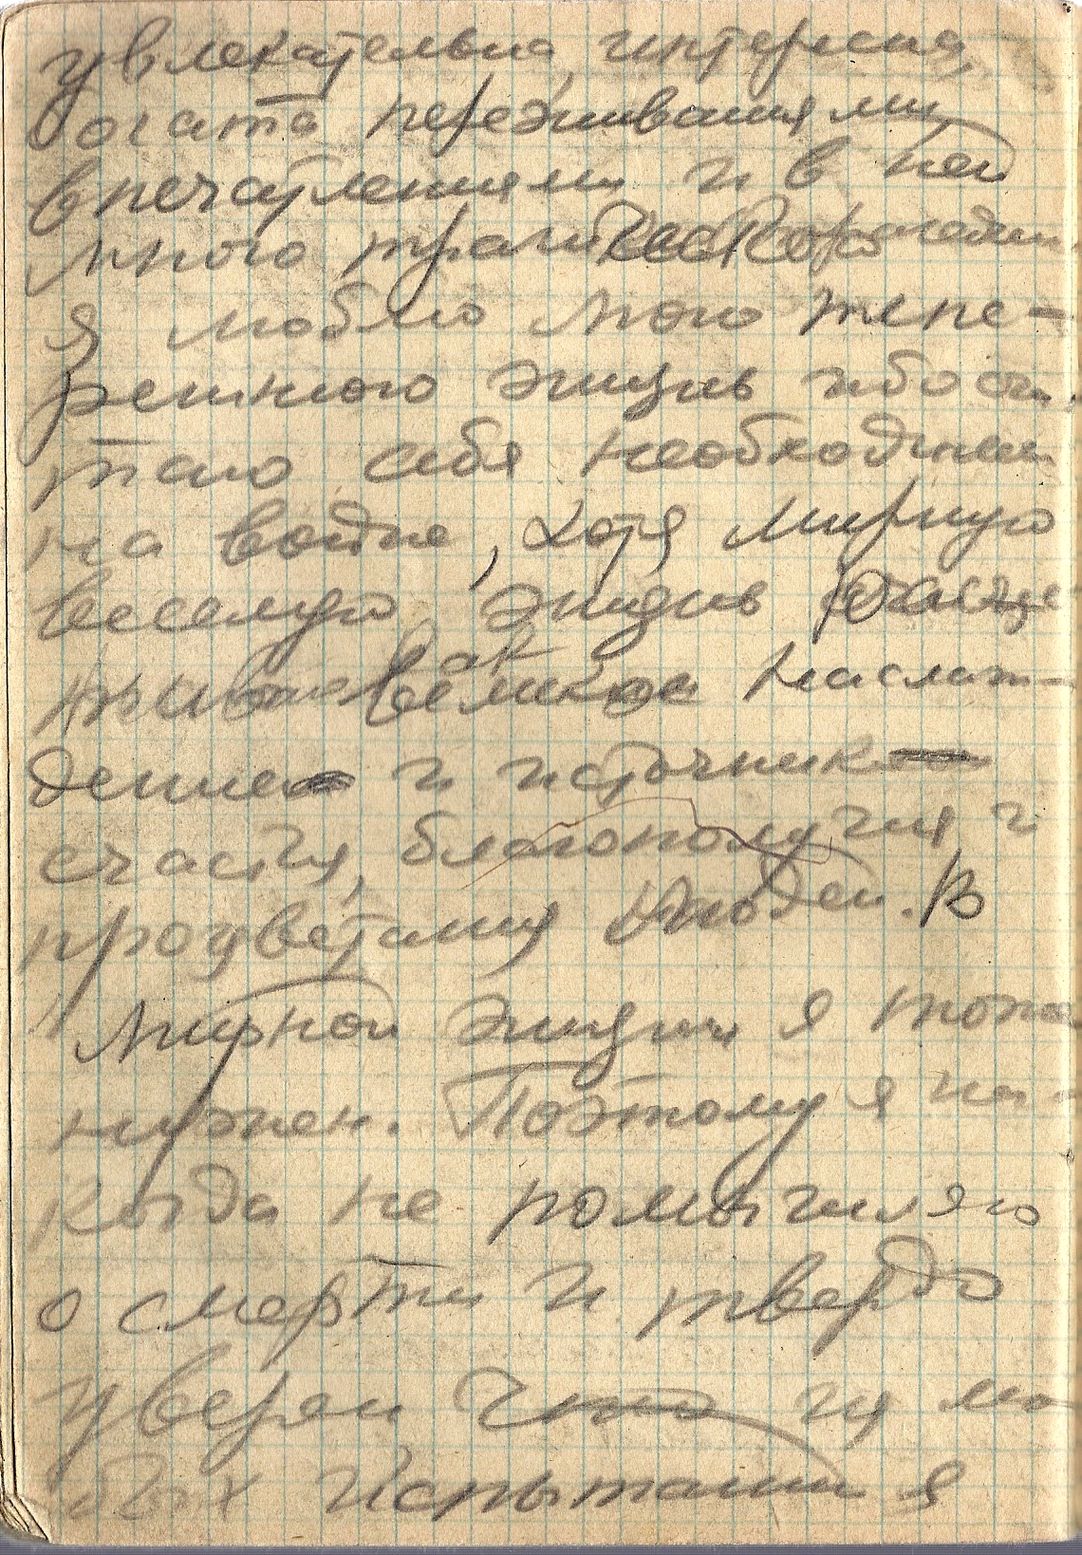 увлекательна, интересна,
богата переживаниями
впечатлениями и в ней
много трагического
я люблю мою тепе-
решнюю жизнь ибо счи
таю себя необходимым
на войне, хотя мирную
веселую жизнь
как великое наслаж-
дение и источник
счастья, благополучия и
процветания людей. В
мирной жизни я тоже
нужен. Поэтому я ни-
когда не помышляю
о смерти и твердо
уверен, что из лю
бых испытаний я